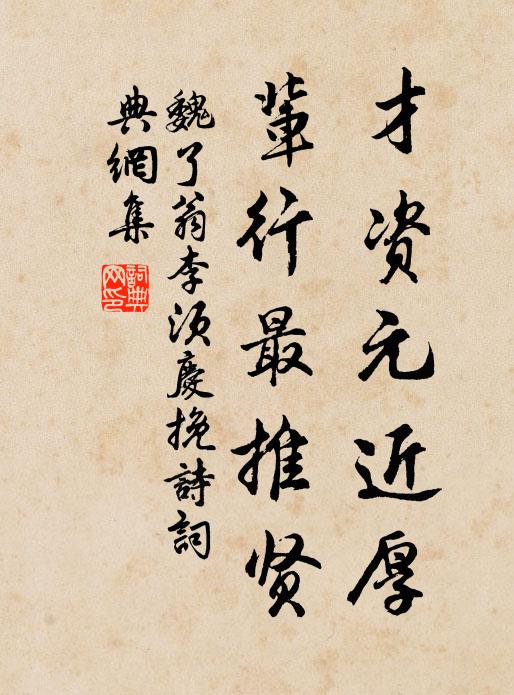 才资元近厚
辈行最推贤
魏了翁李须庆挽詩詞
典網集
詞典
网印